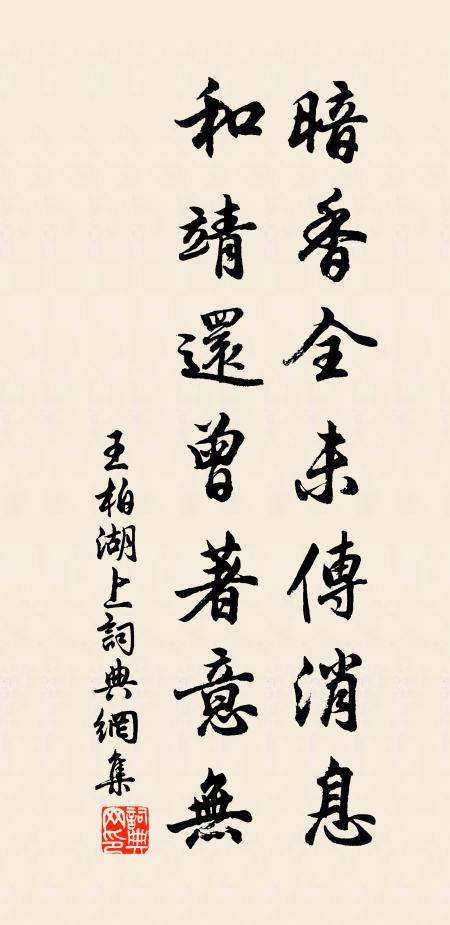 暗香全未傳消息
和靖還曾著意無
王柏湖上詞典網集
詞典
网印